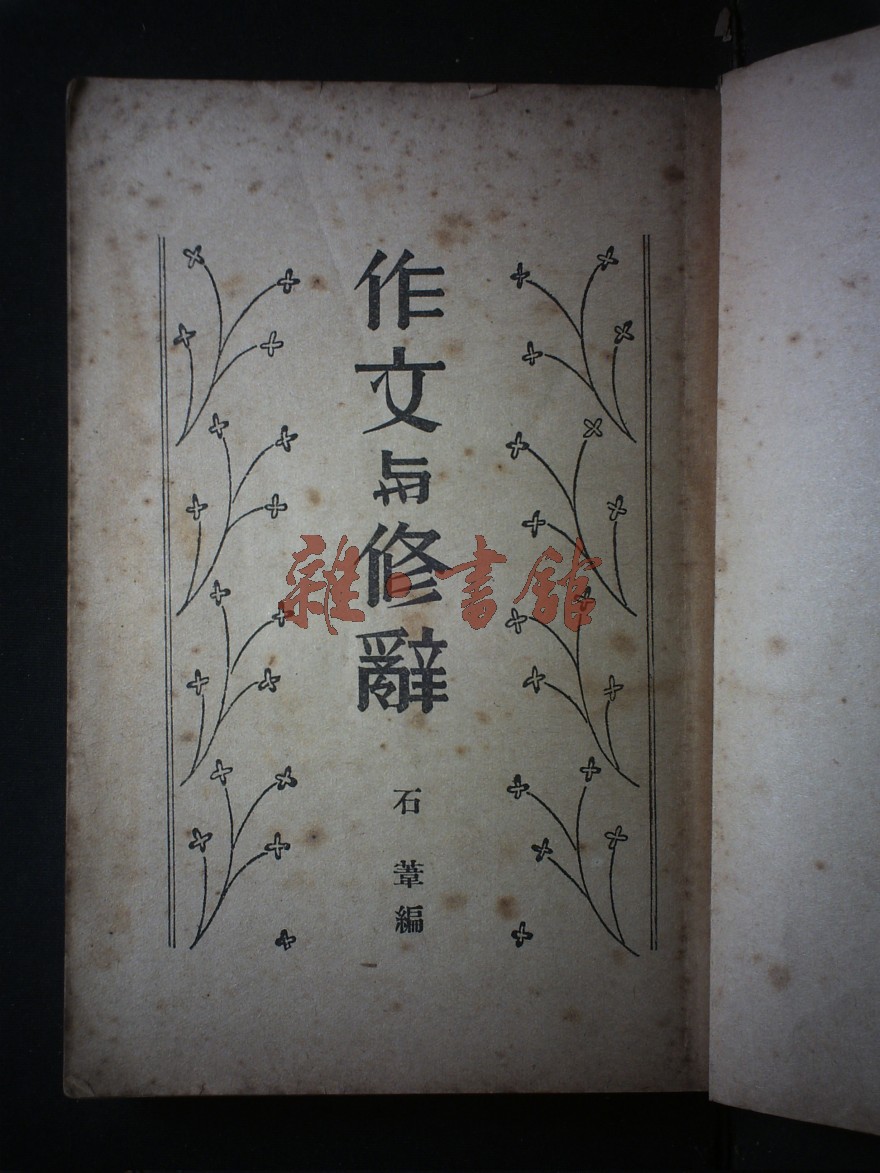 作文与修辭
石葦編
雜·書館